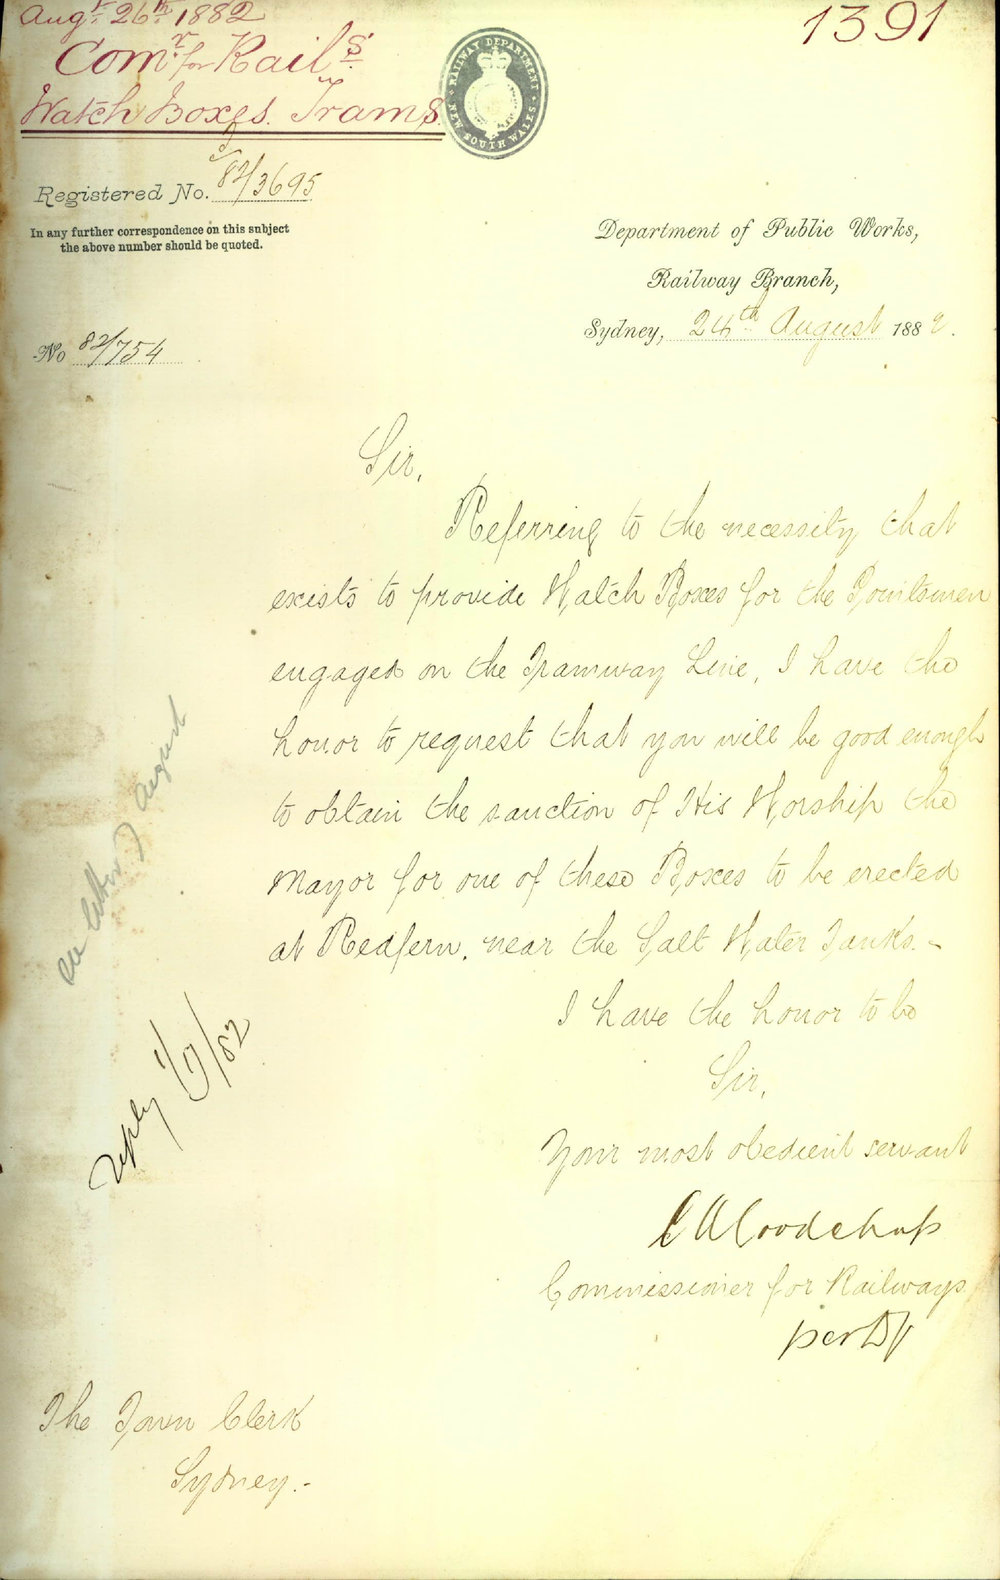 Augt. 26th 1882
1391
Comr. for Rails.
Watch Boxes. Trams.
RAILWAY DEPARTMENT
NEW SOUTH WALES
Registered No. 82/3695
In any further correspondence on this subject
the above number should be quoted.
Department of Public Works,
Railway Branch,
Sydney, 24th August 1882.
No 82/754
Sir,
Referring to the necessity that
exists to provide Watch Boxes for the Pointsmen
engaged on the Tramway Line, I have the
honor to request that you will be good enough
to obtain the sanction of His Worship the
Mayor for one of these Boxes to be erected
at Redfern, near the Salt Water Tanks. -
I have the honor to be
Sir,
Your most obedient servant
Commissioner for Railways.
per
reply
August
The Town Clerk
Sydney. -